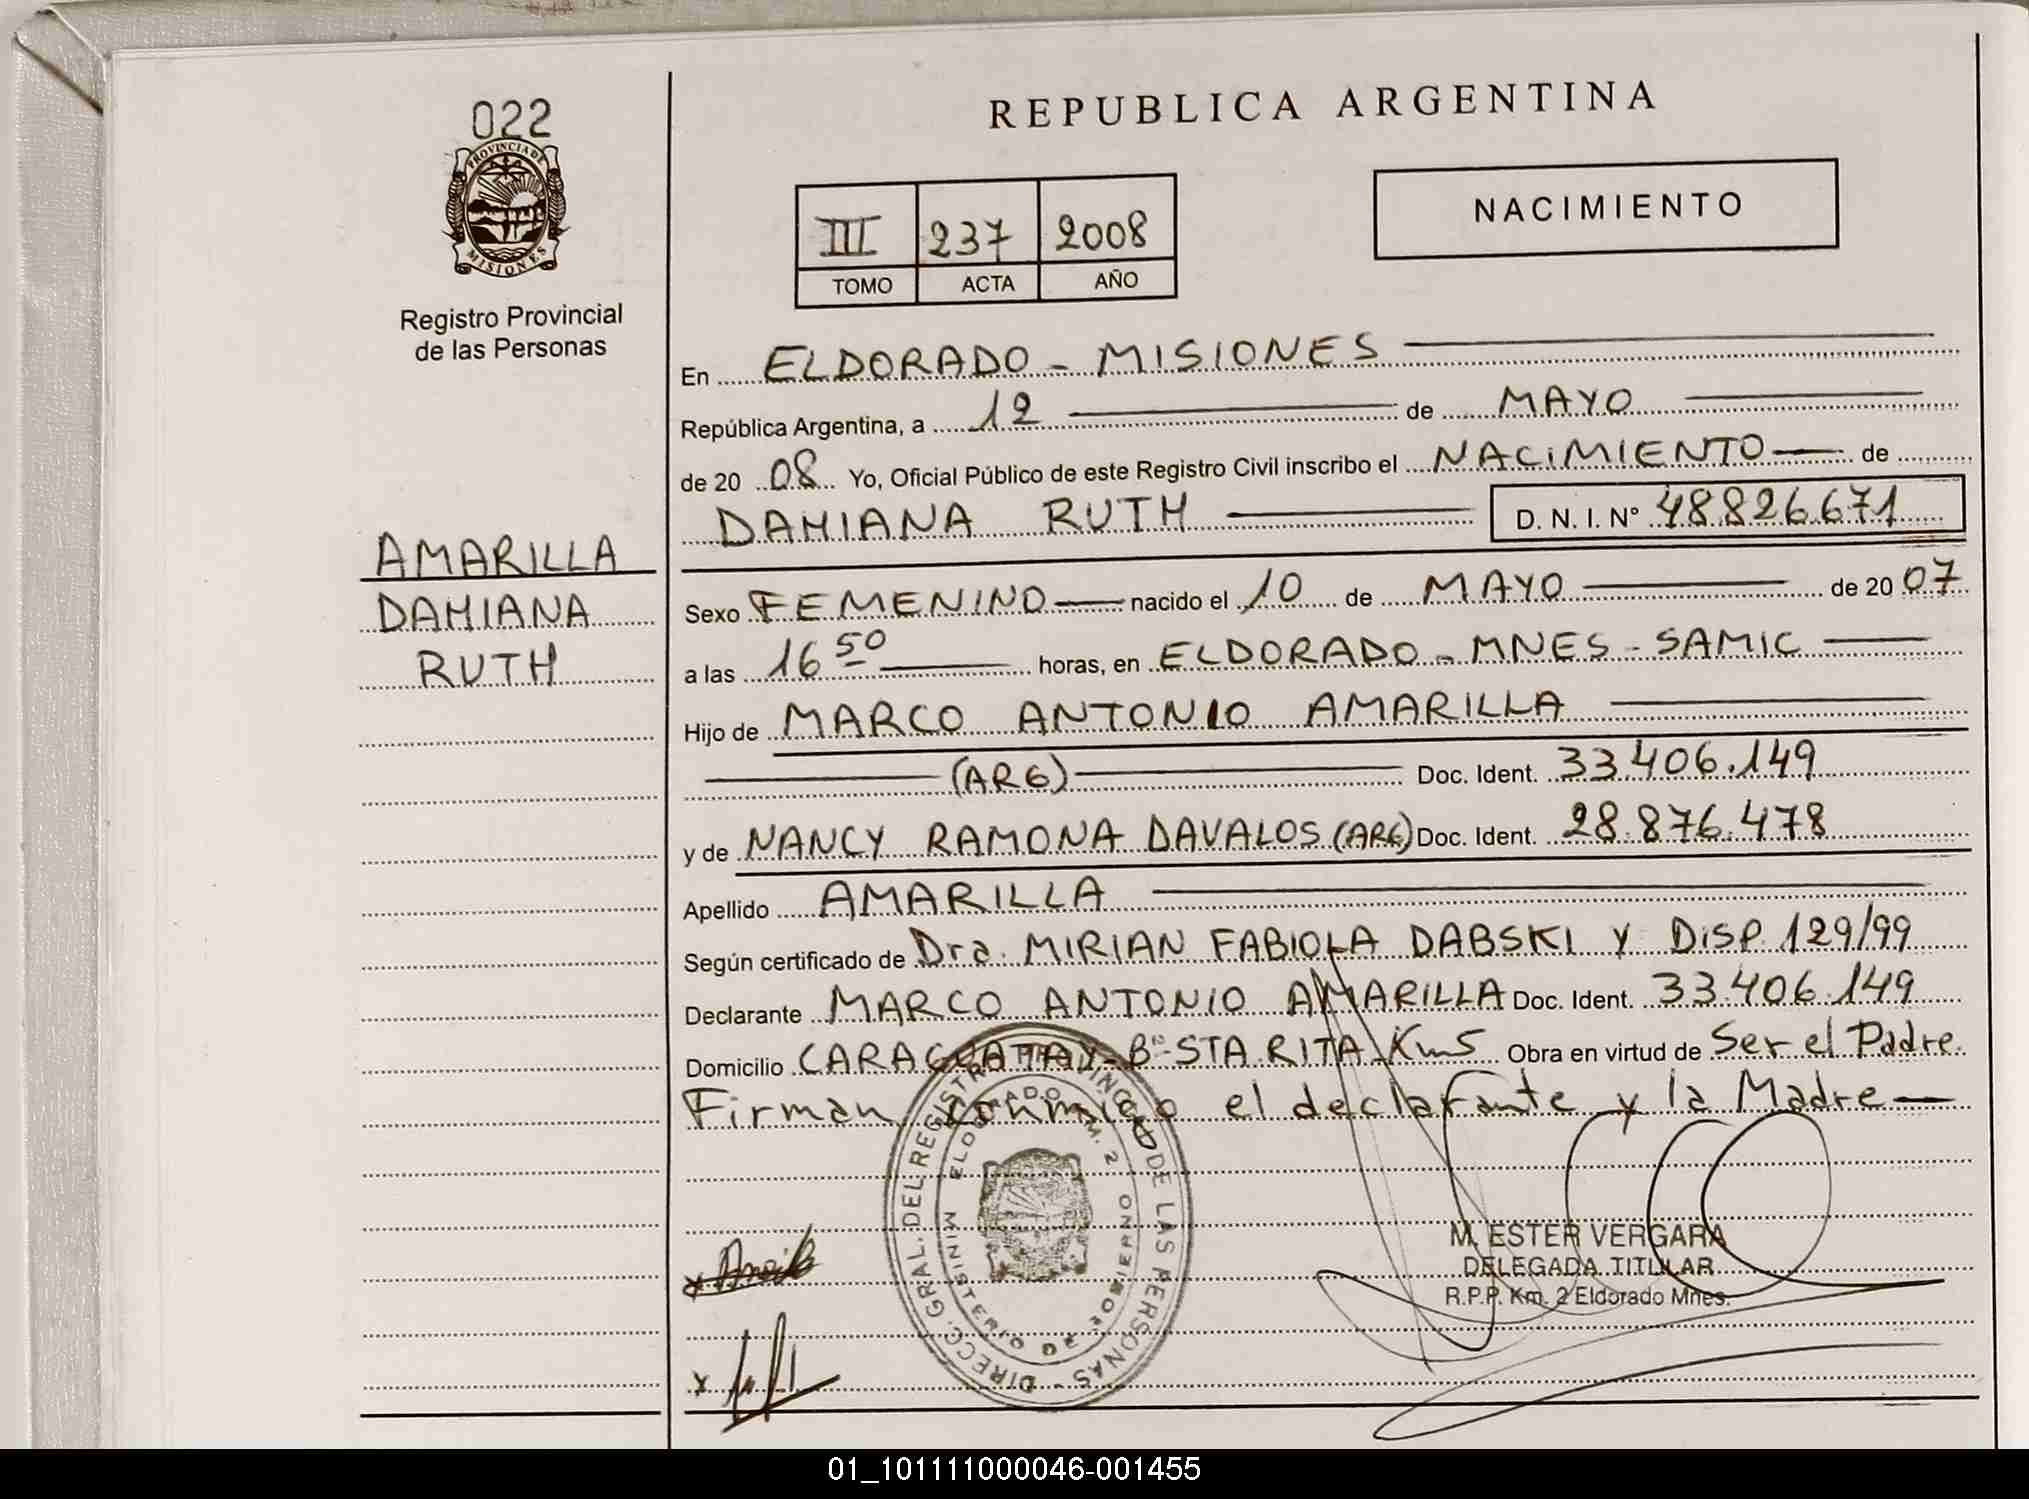 022
PROVINCIA DE
MISIONES
Registro Provincial
de las Personas
AMARILLA
DAMIANA
RUTH
REPUBLICA ARGENTINA
III 237 2008
TOMO ACTA AÑO
NACIMIENTO
En ELDORADO - MISIONES
República Argentina, a 12 de MAYO
de 20 08 Yo, Oficial Público de este Registro Civil inscribo el NACIMIENTO de
DAMIANA RUTH D. N. I. N° 48.826.671
Sexo FEMENINO nacido el 10 de MAYO de 20 07
a las 16 50 horas, en ELDORADO - MNES - SAMIC
Hijo de MARCO ANTONIO AMARILLA
(ARG) Doc. Ident. 33.406.149
y de NANCY RAMONA DAVALOS (ARG) Doc. Ident. 28.876.478
Apellido AMARILLA
Según certificado de Dra. MIRIAN FABIOLA DABSKI Y DISP. 129/99
Declarante MARCO ANTONIO AMARILLA Doc. Ident. 33.406.149
Domicilio CARAGUATAY - B° STA RITA Km5 Obra en virtud de Ser el Padre.
Firman conmigo el declarante y la Madre
DIRECC. GRAL. DEL REGISTRO PROVINCIAL DE LAS PERSONAS
MINISTERIO DE GOBIERNO
ELDORADO KM. 2
M. ESTER VERGARA
DELEGADA TITULAR
R.P.P. Km. 2 Eldorado Mnes.
01_101111000046-001455